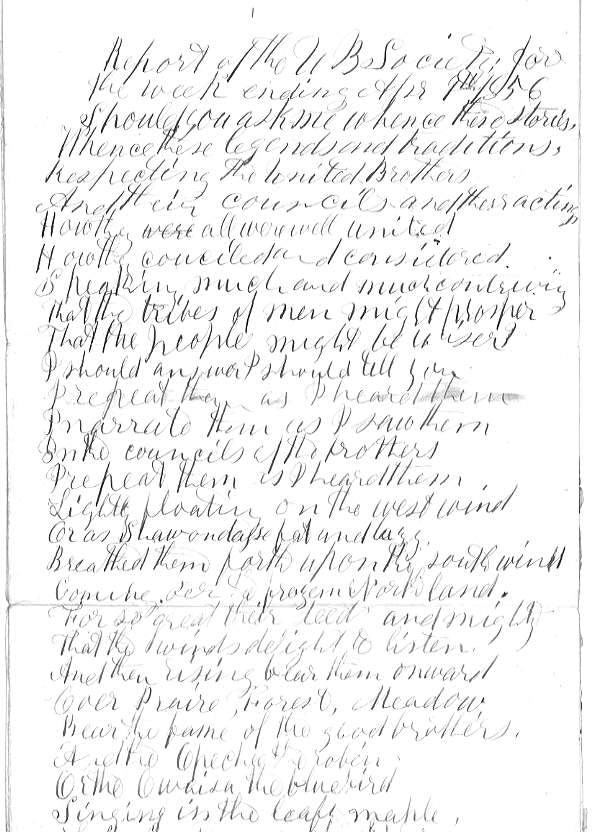 1
Report of the U B Society for
the week ending Apr 9th 1856
Should you ask me whence these stories,
Whence these legends and traditions,
Respecting The United Brothers
And their councils and their acting
How they were all were well united
How they counciled and considered.
Speaking much and much contriving
That the tribes of men might prosper
That the people might be wiser
I should answer I should tell you
I repeat them as I heard them
I narrate them as I saw them
In the councils of the brothers
I repeat them as I heard them
Lightly floating on the west wind
Or as Shawondasse fat and lazy
Breathed them forth upon the south wind
frozen North land.
For so great their deed and might
That the winds delight to listen.
And then rising bear them onward
Over Prairie, Forest, Meadow,
Bear the fame of the good brothers.
And the Opechee the robin
Or the Owaisa, the bluebird
Singing in the leafy maple,